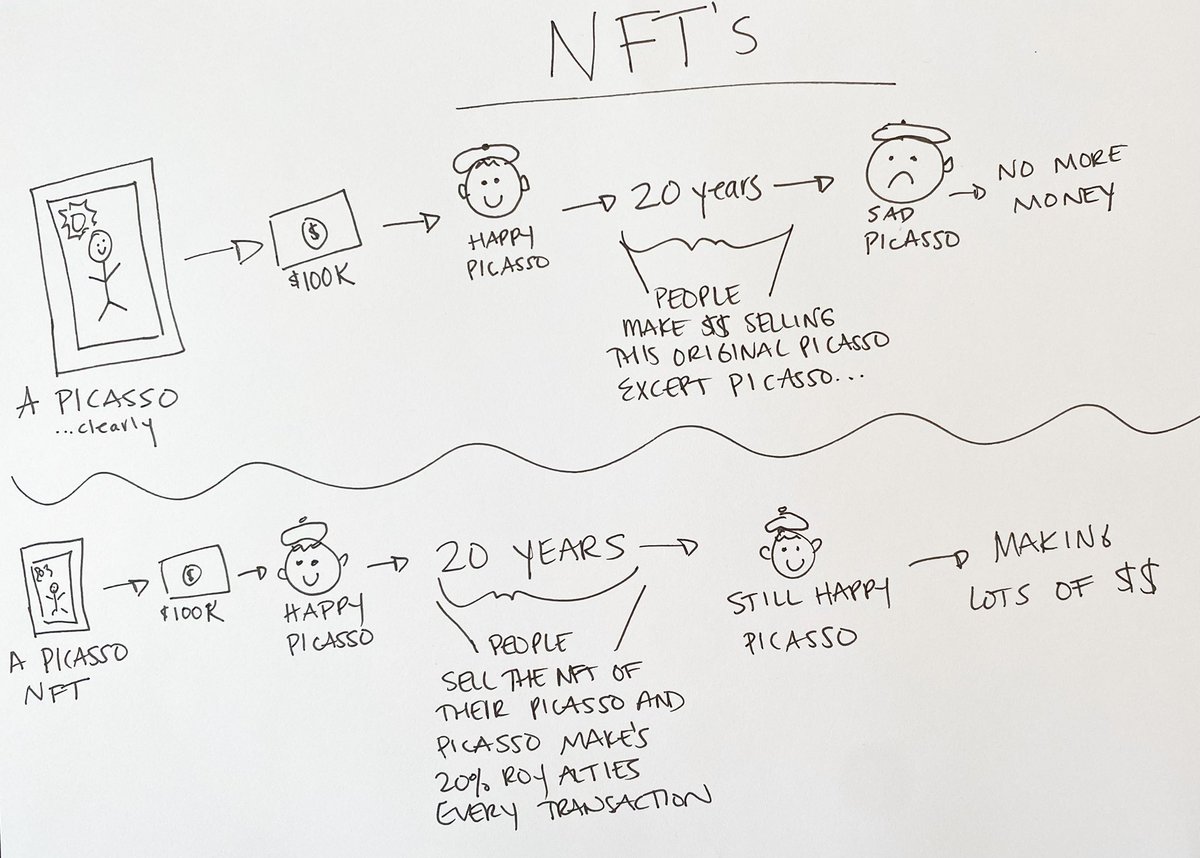 NFT's
A PICASSO
...clearly
$
$100K
HAPPY
PICASSO
20 years
PEOPLE
MAKE $$ SELLING
THIS ORIGINAL PICASSO
EXCEPT PICASSO...
SAD
PICASSO
NO MORE
MONEY
A PICASSO
NFT
$
$100K
HAPPY
PICASSO
20 YEARS
PEOPLE
SELL THE NFT OF
THEIR PICASSO AND
PICASSO MAKE'S
20% ROYALTIES
EVERY TRANSACTION
STILL HAPPY
PICASSO
MAKING
LOTS OF $$